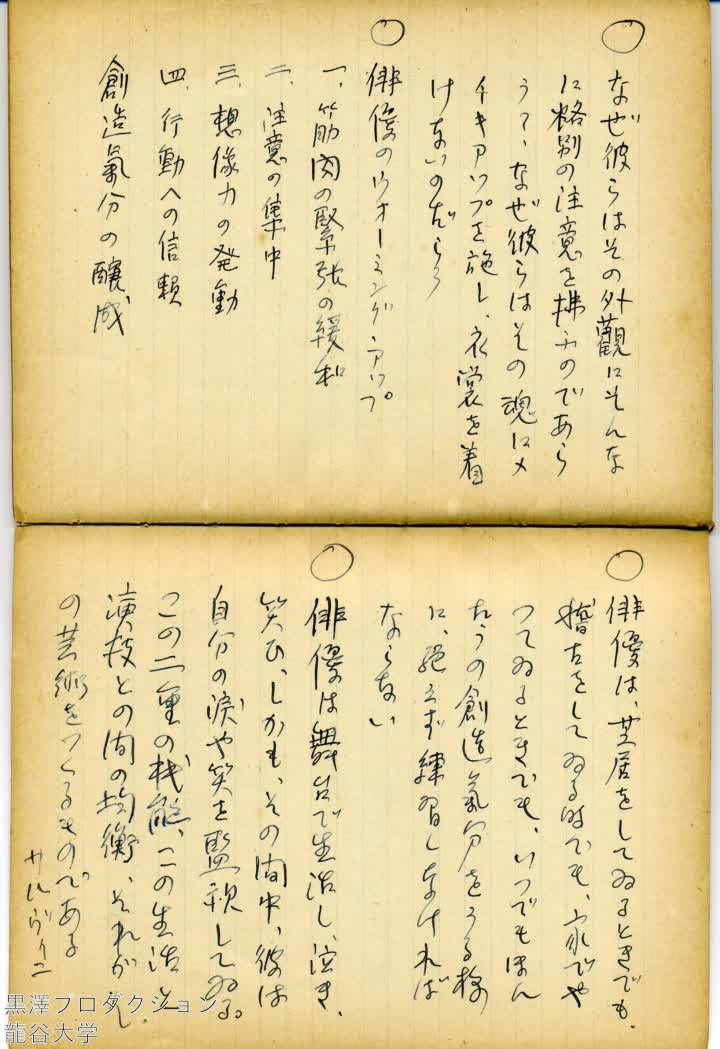 ○
なぜ彼らはその外觀にそんな
に格別の注意を拂ふのであら
うか、なぜ彼らはその魂にメ
イキアップを施し、衣裳を着
けないのだらう
○
俳優のウオーミング・アップ
一、筋肉の緊張の緩和
二、注意の集中
三、想像力の発動
四、行動への信頼
創造氣分の醸成
○
俳優は、芝居をしてゐるときでも、
稽古をしてゐる時でも、家でや
つてゐるときでも、いつでもほん
たうの創造氣分をうる様
に、絶えず練習しなければ
ならない
○
俳優は舞台で生活し、泣き、
笑ひ、しかも、その間中、彼は
自分の涙や笑を監視してゐる。
この二重の机能、この生活と
演技との間の均衡、それが彼
の芸術をつくるものである
サルヴィニ
黒澤プロダクション
龍谷大学